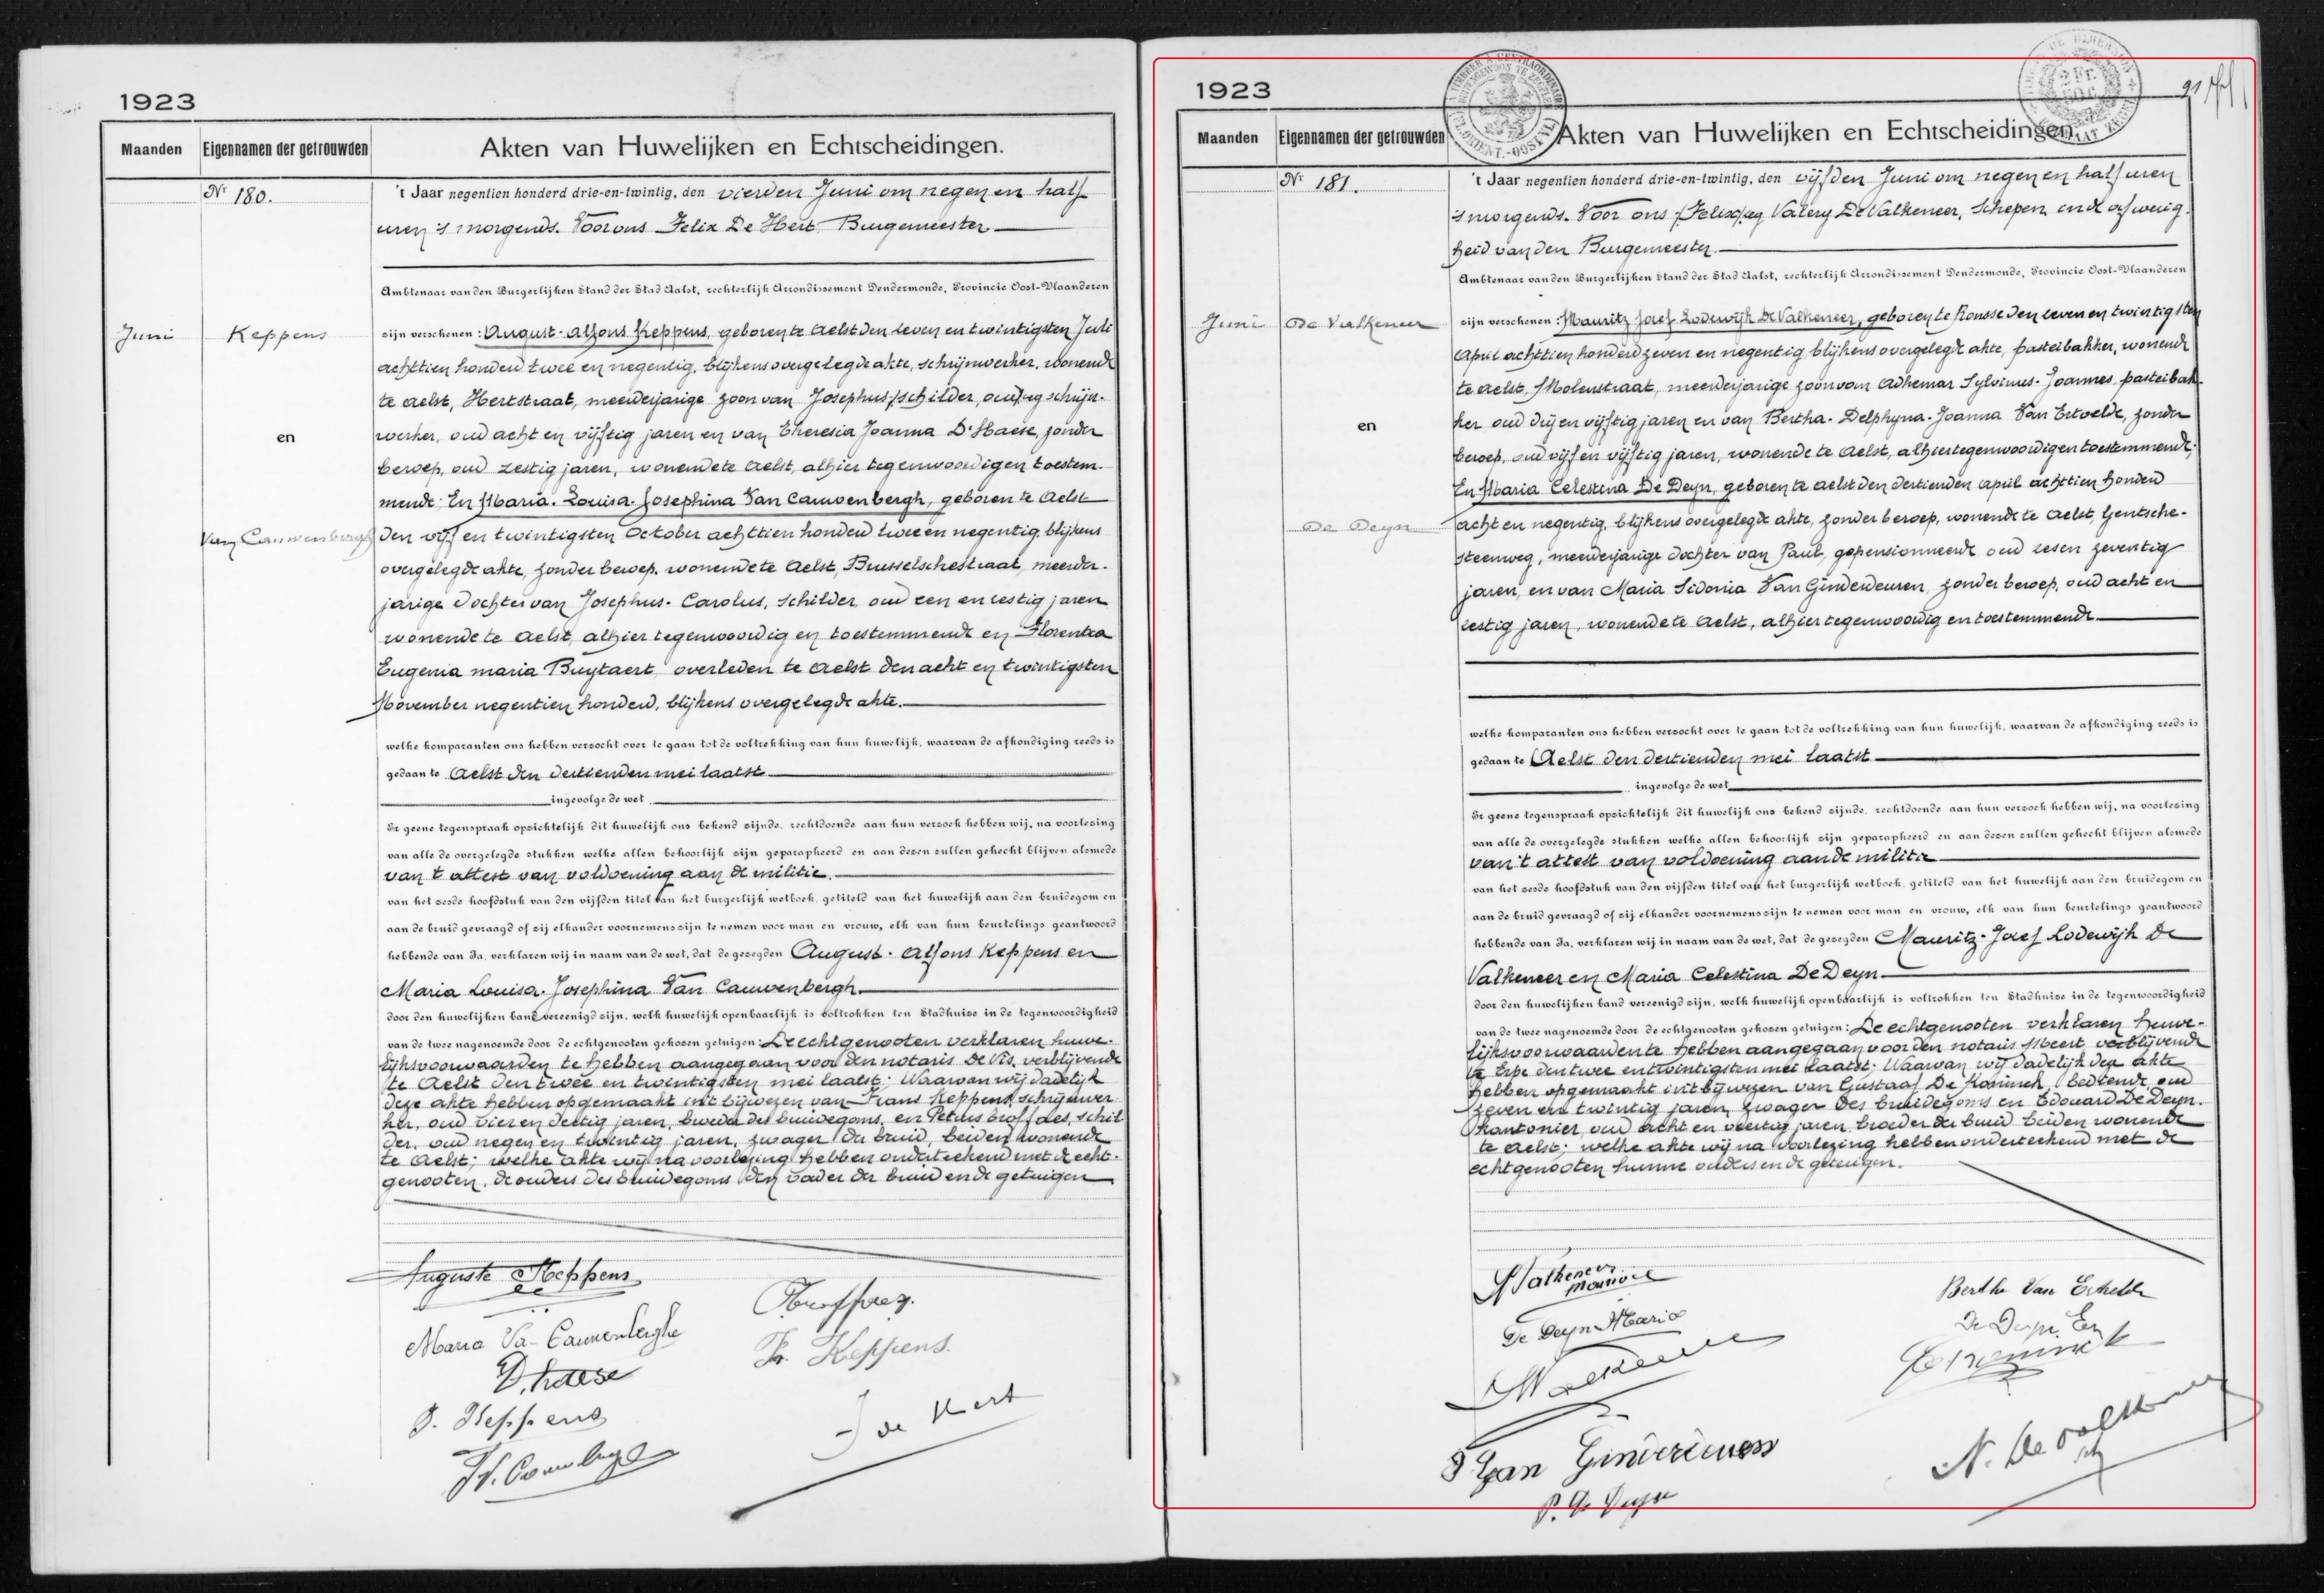 1923
Maanden
Eigennamen der getrouwden
Akten van Huwelijken en Echtscheidingen.
Nr 180.
't Jaar negentien honderd drie-en-twintig, den vierden Juni om negen en half
uren 's morgends. Voor ons Felix De Hert, Burgemeester
Ambtenaar van den Burgerlijken Stand der Stad Aalst, rechterlijk Arrondissement Dendermonde, Provincie Oost-Vlaanderen
Juni
Keppens
en
Van Cauwenbergh
zijn verschenen: August-Alfons Keppens, geboren te Aelst den seven en twintigsten Juli
achttien honderd twee en negentig, blijkens overgelegde akte, schrijnwerker, wonende
te Aelst, Hertstraat, meerderjarige zoon van Josephus, schilder, oud, schrijn-
werker, oud acht en vijftig jaren en van Theresia Joanna D'Haese, zonder
beroep, oud zestig jaren, wonende te Aelst, alhier tegenwoordig en toestem-
mende; En Maria-Louisa-Josephina Van Cauwenbergh, geboren te Aelst
den vijf en twintigsten October achttien honderd twee en negentig, blijkens
overgelegde akte, zonder beroep, wonende te Aelst, Brusselschestraat, meerder-
jarige dochter van Josephus-Carolus, schilder, oud een en sestig jaren
wonende te Aelst, alhier tegenwoordig en toestemmende en Florentia
Eugenia Maria Buytaert, overleden te Aelst den acht en twintigsten
November negentien honderd, blijkens overgelegde akte.
welke komparanten ons hebben verzocht over te gaan tot de voltrekking van hun huwelijk, waarvan de afkondiging reeds is
gedaan te Aelst den dertienden mei laatst
ingevolge de wet
Er geene tegenspraak opzichtelijk dit huwelijk ons bekend zijnde, rechtdoende aan hun verzoek hebben wij, na voorlezing
van alle de overgelegde stukken welke allen behoorlijk zijn geparapheerd en aan dezen zullen gehecht blijven alsmede
van 't attest van voldoening aan de militie.
van het zesde hoofdstuk van den vijfden titel van het burgerlijk wetboek, getiteld van het huwelijk aan den bruidegom en
aan de bruid gevraagd of zij elkander voornemens zijn te nemen voor man en vrouw, elk van hun beurtelings geantwoord
hebbende van Ja, verklaren wij in naam van de wet, dat de gezegden August-Alfons Keppens en
Maria Louisa-Josephina Van Cauwenbergh
door den huwelijken band vereenigd zijn, welk huwelijk openbaarlijk is voltrokken ten Stadhuize in de tegenwoordigheid
van de twee nagenoemde door de echtgenooten gekozen getuigen: De echtgenooten verklaren huwe-
lijksvoorwaarden te hebben aangegaan voor den notaris De Vis, verblijvende
te Aelst den twee en twintigsten mei laatst; Waarvan wij dadelijk
deze akte hebben opgemaakt in 't bijwezen van Frans Keppens, schrijnwer-
ker, oud vier en dertig jaren, broeder des bruidegoms, en Petrus Broffaes, schil-
der, oud negen en twintig jaren, zwager der bruid, beiden wonende
te Aelst; welke akte wij na voorlezing hebben onderteekend met de echt-
genooten, de ouders des bruidegoms, den vader der bruid en de getuigen
Auguste Keppens
Maria Va- Cauwenberghe
D'haese
J. Keppens
Fr. Keppens.
F de Hert
1923
Maanden
Eigennamen der getrouwden
Akten van Huwelijken en Echtscheidingen.
91
Nr 181.
't Jaar negentien honderd drie-en-twintig, den vijfden Juni om negen en half uren
's morgends. Voor ons (Felix) eg Valery De Valkeneer, Schepen, in de afwezig-
heid van den Burgemeester.
Ambtenaar van den Burgerlijken Stand der Stad Aalst, rechterlijk Arrondissement Dendermonde, Provincie Oost-Vlaanderen
Juni
De Valkeneer
en
De Deyn
zijn verschenen: Mauritz Josef Lodewijk De Valkeneer, geboren te Ronsse den seven en twintigsten
April achttien honderd zeven en negentig, blijkens overgelegde akte, pasteibakker, wonende
te Aelst, Molenstraat, meerderjarige zoon van Adhemar Sylvinus-Joannes, pasteibak-
ker oud drij en vijftig jaren en van Bertha-Delphyna-Joanna Van Ertvelde, zonder
beroep, oud vijf en vijftig jaren, wonende te Aelst, alhier tegenwoordig en toestemmende;
En Maria Celestina De Deyn, geboren te Aelst den dertienden April achttien honderd
acht en negentig, blijkens overgelegde akte, zonder beroep, wonende te Aelst, Gentsche-
steenweg, meerderjarige dochter van Paul, gepensionneerde oud zes en zeventig
jaren, en van Maria Sidonia Van Ginderdeuren, zonder beroep, oud acht en
sestig jaren, wonende te Aelst, alhier tegenwoordig en toestemmende
welke komparanten ons hebben verzocht over te gaan tot de voltrekking van hun huwelijk, waarvan de afkondiging reeds is
gedaan te Aelst den dertienden mei laatst
ingevolge de wet
Er geene tegenspraak opzichtelijk dit huwelijk ons bekend zijnde, rechtdoende aan hun verzoek hebben wij, na voorlezing
van alle de overgelegde stukken welke allen behoorlijk zijn geparapheerd en aan dezen zullen gehecht blijven alsmede
van 't attest van voldoening aan de militie
van het zesde hoofdstuk van den vijfden titel van het burgerlijk wetboek, getiteld van het huwelijk aan den bruidegom en
aan de bruid gevraagd of zij elkander voornemens zijn te nemen voor man en vrouw, elk van hun beurtelings geantwoord
hebbende van Ja, verklaren wij in naam van de wet, dat de gezegden Mauritz-Josef Lodewijk De
Valkeneer en Maria Celestina De Deyn
door den huwelijken band vereenigd zijn, welk huwelijk openbaarlijk is voltrokken ten Stadhuize in de tegenwoordigheid
van de twee nagenoemde door de echtgenooten gekozen getuigen: De echtgenooten verklaren huwe-
lijksvoorwaarden te hebben aangegaan voor den notaris Meert verblijvende
te Erpe den twee en twintigsten mei laatst; Waarvan wij dadelijk deze akte
hebben opgemaakt in 't bijwezen van Gustaaf De Koninck, bediende, oud
zeven en twintig jaren, zwager des bruidegoms en Edouard De Deyn,
kantonier, oud acht en veertig jaren, broeder der bruid beiden wonende
te Aelst; welke akte wij na voorlezing hebben onderteekend met de
echtgenooten hunne ouders en de getuigen.
Valkeneer
Maurice
De Deyn Maria
Berthe Van Ertvelde
De Deyn Ed
De Koninck
Van Ginderdeuren
P. De Deyn
De Valkeneer